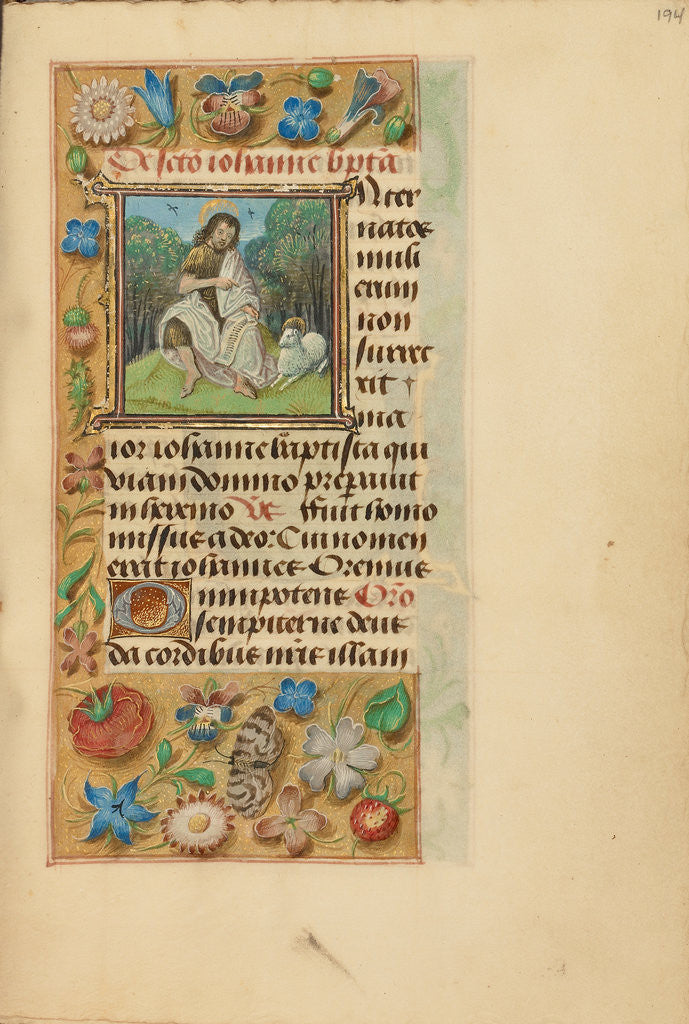 194
De scto iohanne bpta
Nter
natos
muli
erum
non
surrex
xit
ma
ior iohanne baptista qui
viam domino preparauit
in heremo Vs ffuit homo
missus a deo: Cui nomen
erat iohannes Oremus
Omnipotens Oro
sempiterne deus
da cordibus nris illam